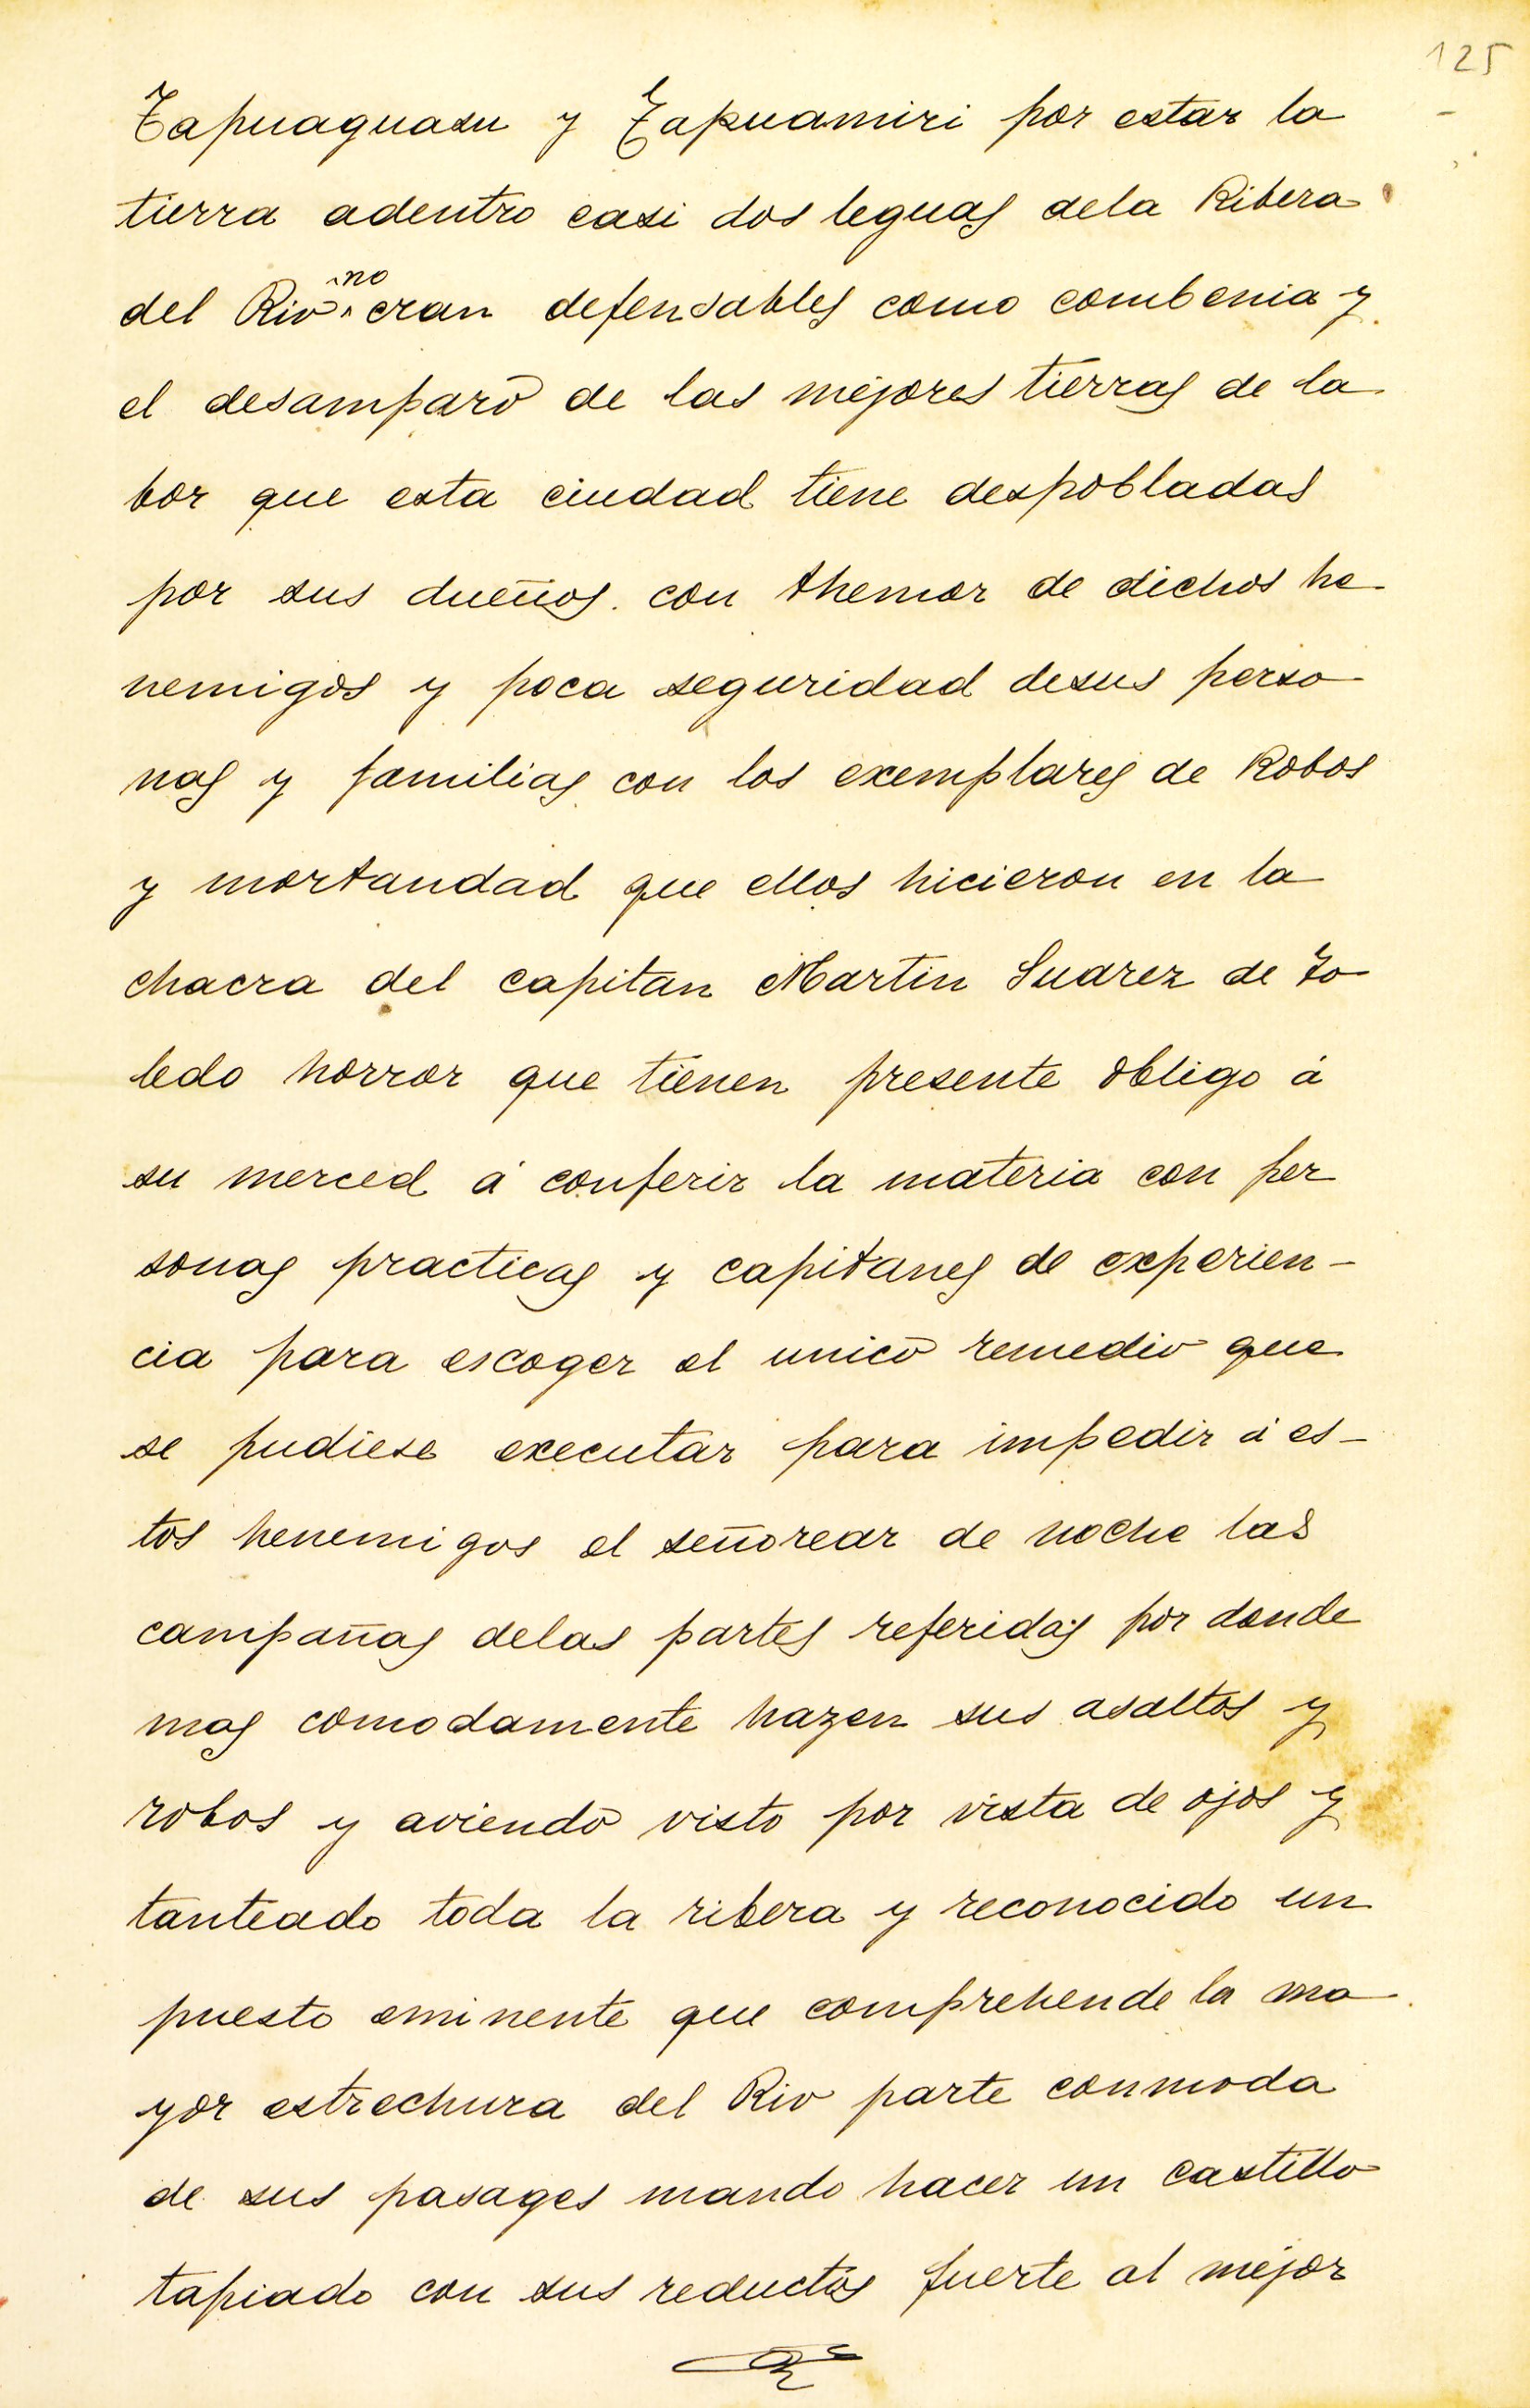 125
Tapuaguasu y Tapuamiri por estar la
tierra adentro casi dos leguas dela Ribera
del Rio no eran defensables como combenia y
el desamparo de las mejores tierras de la
bor que esta ciudad tiene despobladas
por sus dueños. con themor de dichos he
nemigos y poca seguridad desus perso
nas y familias con los exemplares de Robos
y mortandad que ellos hicieron en la
chacra del capitan Martin Suarez de To
ledo horror que tienen presente obligo á
su merced á conferir la materia con per
sonas practicas y capitanes de experien-
cia para escoger el unico remedio que
se pudiese executar para impedir á es-
tos henemigos el señorear de noche las
campañas delas partes referidas por donde
mas comodamente hazen sus asaltos y
robos y aviendo visto por vista de ojos y
tanteado toda la ribera y reconocido un
puesto eminente que comprehende la ma
yor estrechura del Rio parte conmoda
de sus pasages mando hacer un castillo
tapiado con sus reductos fuerte al mejor